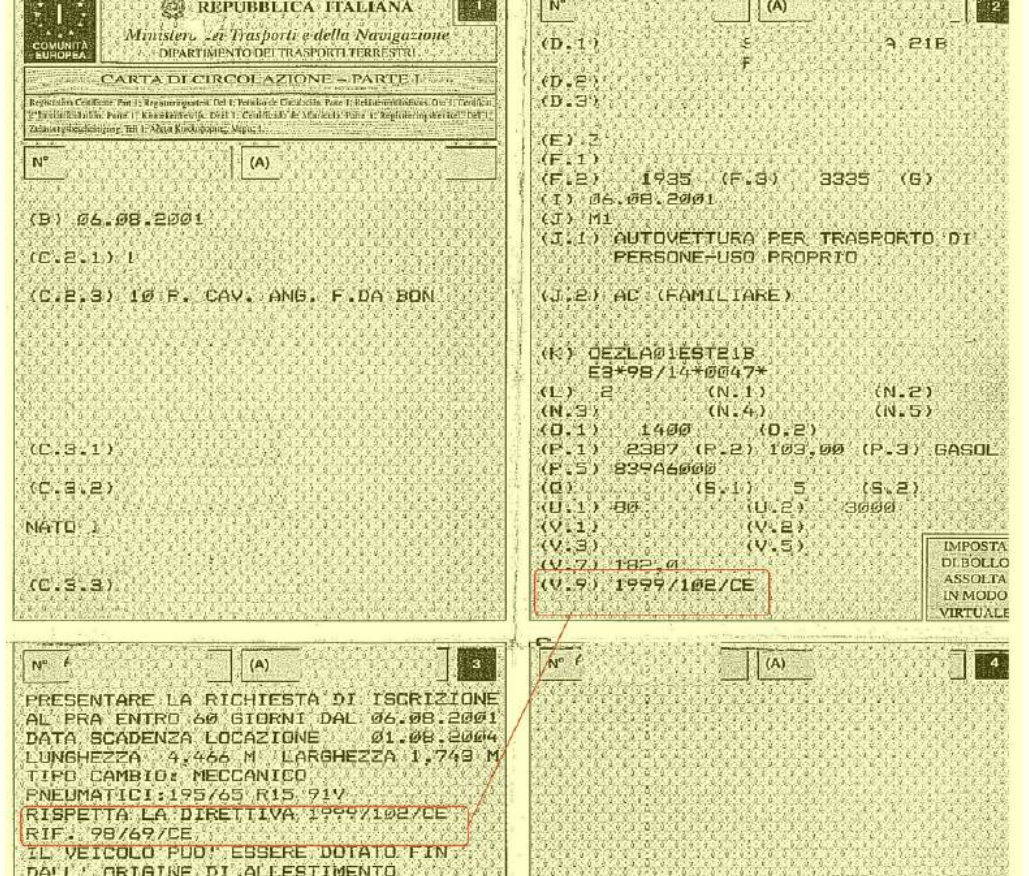 REPUBBLICA ITALIANA
1
Ministero dei Trasporti e della Navigazione
COMUNITÀ
EUROPEA
DIPARTIMENTO DEI TRASPORTI TERRESTRI
CARTA DI CIRCOLAZIONE – PARTE I
N° (A)
(B) 06.08.2001
(C.2.1)
(C.2.3) 10 P. CAV. ANG. F.DA BON
(C.3.1)
(C.3.2)
NATO
(C.3.3)
N° (A) 2
(D.1) A 21B
(D.2)
(D.3)
(E) Z
(F.1)
(F.2) 1935 (F.3) 3335 (G)
(I) 06.08.2001
(J) M1
(J.1) AUTOVETTURA PER TRASPORTO DI
PERSONE-USO PROPRIO
(J.2) AC (FAMILIARE)
(K) OEZLA01EST21B
E3*98/14*0047*
(L) 2 (N.1) (N.2)
(N.3) (N.4) (N.5)
(O.1) 1400 (O.2)
(P.1) 2387 (P.2) 103,00 (P.3) GASOL
(P.5) 839A6000
(Q) (S.1) 5 (S.2)
(U.1) 80 (U.2) 3000
(V.1) (V.2)
(V.3) (V.5)
(V.7) 182,0
(V.9) 1999/102/CE
IMPOSTA
DI BOLLO
ASSOLTA
IN MODO
VIRTUALE
N° (A) 3
PRESENTARE LA RICHIESTA DI ISCRIZIONE
AL PRA ENTRO 60 GIORNI DAL 06.08.2001
DATA SCADENZA LOCAZIONE 01.08.2004
LUNGHEZZA 4,466 M LARGHEZZA 1,749 M
TIPO CAMBIO: MECCANICO
PNEUMATICI:195/65 R15 91V
RISPETTA LA DIRETTIVA 1999/102/CE
RIF. 98/69/CE
IL VEICOLO PUO' ESSERE DOTATO FIN
DALL' ORIGINE DI ALLESTIMENTO
N° (A) 4